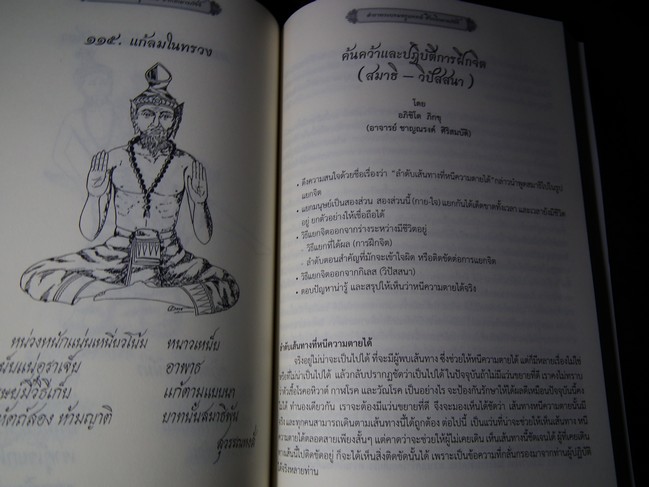 ๑๑๕. แก้ลมในทรวง
หน่วงหนักแน่นเหนี่ยวโน้ม หนาวเหน็บ
อาพาธ
แก้ตามแบบนา
ค้นคว้าและปฏิบัติการฝึกจิต
(สมาธิ – วิปัสสนา)
โดย
อภิชิโต ภิกขุ
(อาจารย์ ชาญณรงค์ ศิริสมบัติ)
• ดึงความสนใจด้วยชื่อเรื่องว่า "ลำดับเส้นทางที่หนีความตายได้" กล่าวนำพูดสมาธิในรูป
แยกจิต
• แยกมนุษย์เป็นสองส่วน สองส่วนนี้ (กาย-ใจ) แยกกันได้เด็ดขาดทั้งเวลา และเวลายังมีชีวิต
อยู่ ยกตัวอย่างให้เชื่อถือได้
• วิธีแยกจิตออกจากร่างระหว่างมีชีวิตอยู่
- วิธีแยกที่ได้ผล (การฝึกจิต)
- ลำดับตอนสำคัญที่มักจะเข้าใจผิด หรือติดขัดต่อการแยกจิต
• วิธีแยกจิตออกจากกิเลส (วิปัสสนา)
• ตอบปัญหาน่ารู้ และสรุปให้เห็นว่าหนีความตายได้จริง
ลำดับเส้นทางที่หนีความตายได้
จริงอยู่ไม่น่าจะเป็นไปได้ ที่จะมีผู้พบเส้นทาง ซึ่งช่วยให้หนีความตายได้ แต่ก็มีหลายเรื่องไม่ใช่
หรือที่ไม่น่าเป็นไปได้ แล้วกลับปรากฏชัดว่าเป็นไปได้ ในปัจจุบันถ้าไม่มีแว่นขยายที่ดี เราคงไม่ทราบ
ว่าตัวเชื้อโรคอหิวาต์ กาฬโรค และวัณโรค เป็นอย่างไร จะป้องกันรักษาให้ได้ผลดีเหมือนปัจจุบันนี้คง
ไม่ได้ ทำนองเดียวกัน เราจะต้องมีแว่นขยายที่ดี จึงจะมองเห็นได้ชัดว่า เส้นทางหนีความตายนั้นมี
จริงและทุกคนสามารถเดินตามเส้นทางนี้ได้ถูกต้อง ต่อไปนี้ เป็นแว่นที่น่าจะช่วยให้เห็นเส้นทาง หนี
ความตายได้ตลอดสายเพียงสั้นๆ แต่คาดว่าจะช่วยให้ผู้ไม่เคยเดิน เห็นเส้นทางนี้ชัดเจนได้ ผู้ที่เคยเดิน
ตามเส้นนี้ไปติดขัดอยู่ ก็จะได้เห็นสิ่งติดขัดนั้นได้ เพราะเป็นข้อความที่กลั่นกรองมาจากท่านผู้ปฏิบัติ
ได้จริงหลายท่าน